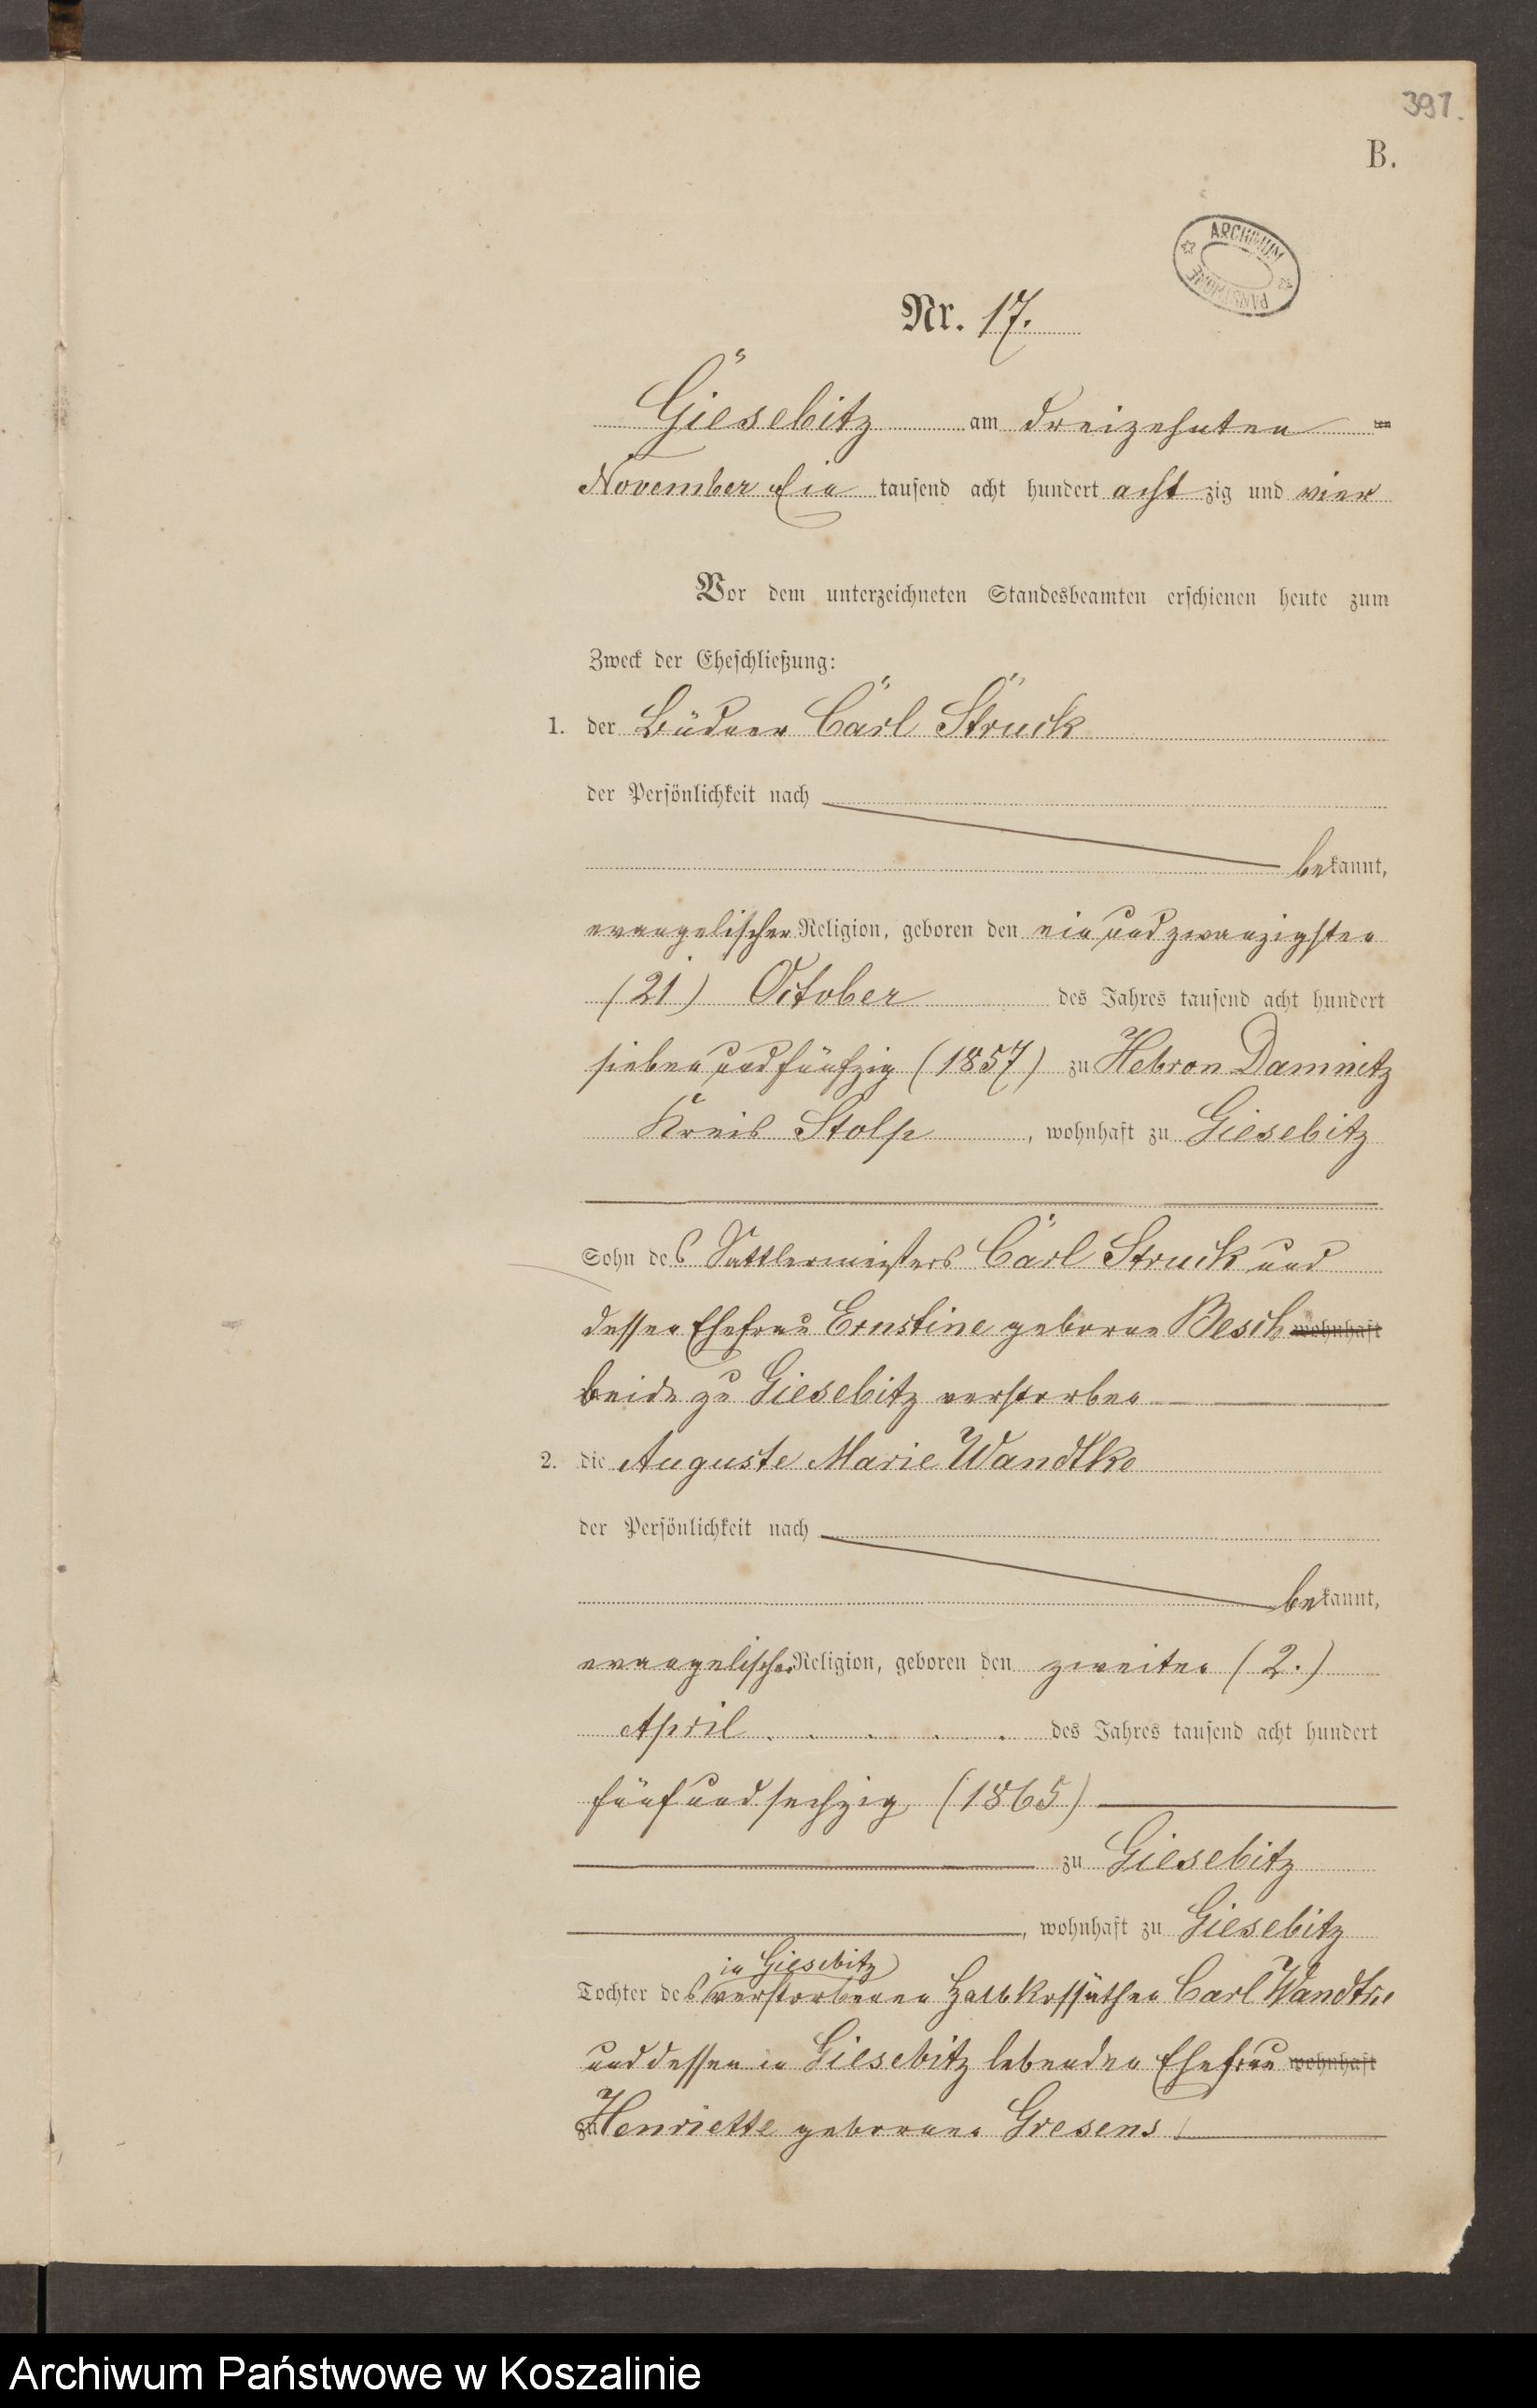 391.
B.
ARCHIWUM PAŃSTWOWE
Nr. 17.
Giesebitz am dreizehnten ten
November Ein tausend acht hundert achtzig und vier
Vor dem unterzeichneten Standesbeamten erschienen heute zum
Zweck der Eheschließung:
1. der Büdner Carl Struck
der Persönlichkeit nach
bekannt,
evangelischer Religion, geboren den ein und zwanzigsten
(21) October des Jahres tausend acht hundert
sieben und fünfzig (1857) zu Hebron Damnitz
Kreis Stolp, wohnhaft zu Giesebitz
Sohn des Sattlermeisters Carl Struck und
dessen Ehefrau Ernstine geborne Besch wohnhaft
beide zu Giesebitz verstorben
2. die Auguste Marie Wandtke
der Persönlichkeit nach
bekannt,
evangelischer Religion, geboren den zweiten (2.)
April des Jahres tausend acht hundert
fünf und sechzig (1865)
zu Giesebitz
, wohnhaft zu Giesebitz
in Giesebitz
Tochter des verstorbenen Halbkossäthen Carl Wandtke
und dessen in Giesebitz lebenden Ehefrau wohnhaft
zu Henriette geborene Gresens
Archiwum Państwowe w Koszalinie